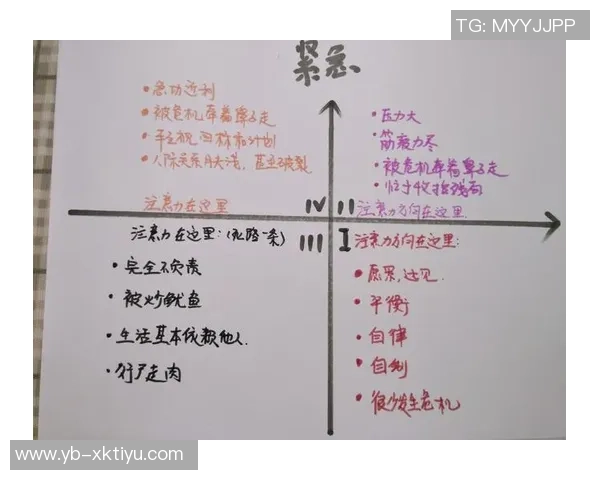 TG: MYYJJPP
紧急
• 急功近利
• 被危机牵着鼻子走
• 轻视目标和计划
• 人际关系肤浅，甚至破裂
注意力在这里
IV
• 压力大
• 筋疲力尽
• 被危机牵着鼻子走
• 忙于收拾残局
II
注意力方向在这里
注意力在这里：(死路一条)
III
• 完全不负责
• 被炒鱿鱼
• 生活基本依赖他人
• 行尸走肉
I
注意力方向在这里：
• 愿景，远见
• 平衡
• 自律
• 自制
• 很少发生危机
www.yb-xktiyu.com